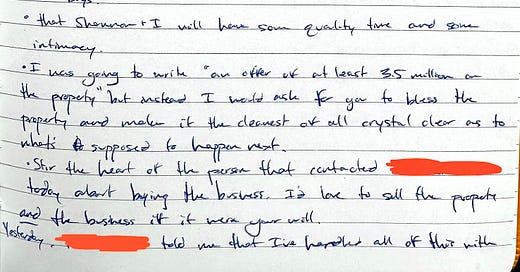 • that Shannon + I will have some quality time and some
intimacy.
• I was going to write "an offer of at least 3.5 million on
the property" but instead I would ask for you to bless the
property and make it the cleanest of all crystal clear as to
what's supposed to happen next.
• Stir the heart of the person that contacted
today about buying the business. I'd love to sell the property
and the business if it were your will.
Yesterday, told me that I've handled all of this with